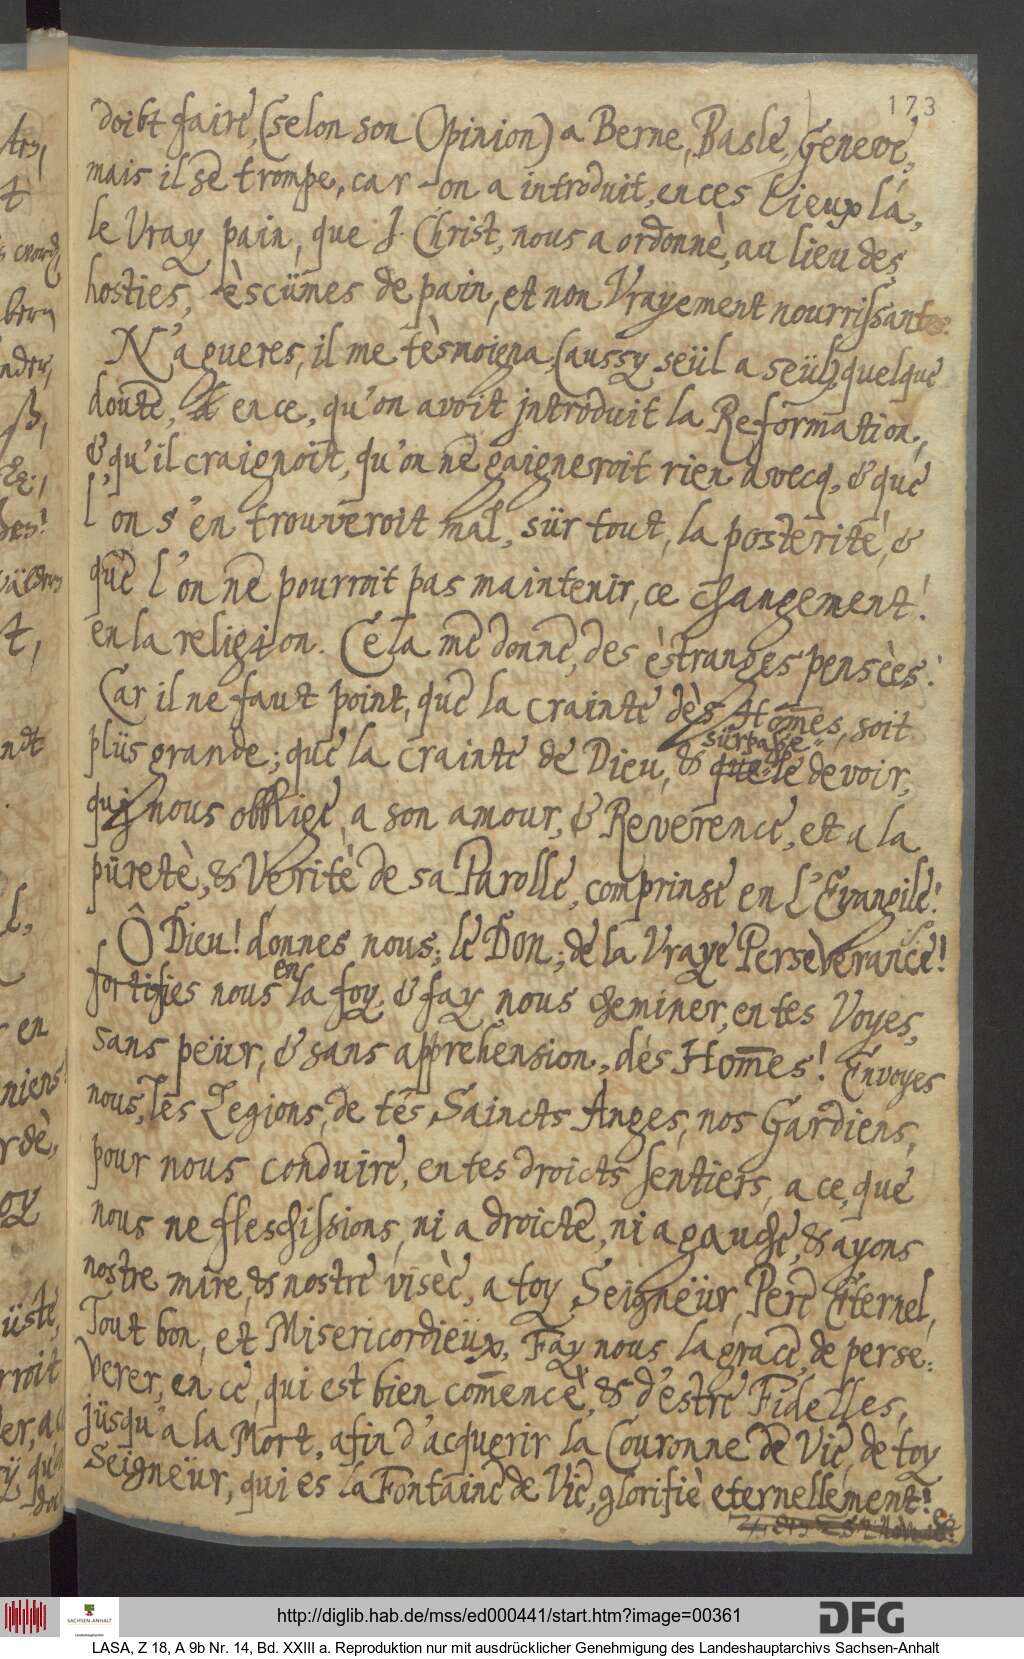 173
doibt faire, (selon son Opinion) a Berne, Basle, Geneve,
mais il se trompe, car on a introduit, en ces lieux là,
le Vray pain, que J. Christ, nous a ordonnè, au lieu des
hosties, èscümes de pain, et non Vrayement nourrissantes.
N'agueres, il me tèsmoigna, (aussy seül a seül) quelque
doute, en ce, qu'on avoit introduit la Reformation,
& qu'il craignoit, qu'on ne gaigneroit rien avecq, & que
l'on s'en trouveroit mal, sür tout, la posterité, &
que l'on ne pourroit pas maintenir, ce changement!
en la religion. Cela me donne, des èstranges pensèes!
Car il ne faut point, que la crainte dès Hom̅es, soit
plüs grande; que la crainte de Dieu, & sürpasse le devoir,
qui nous obblige, a son amour, & Reverence, et a la
püretè, & Veritè de sa Parolle, comprinse en l'Evangile!
Ô Dieu! donnes nous; le Don; de la Vraye Perseverance!
fortifies nous en la foy, & fay nous cheminer, en tes Voyes,
sans peür, & sans apprehension, dés Hom̅es! Envoyes
nous, les Legions, de tes Saincts Anges, nos Gardiens,
pour nous conduire, en tes droicts sentiers, a ce, que
nous ne fleschissions, ni a droicte, ni a gauche, & ayons
nostre mire, & nostre visèe, a toy, Seigneür, Pere Eternel,
Tout bon, et Misericordieüx, Fay nous la grace, de perse=
verer, en ce, qui est bien com̅ence, & d'estre Fidelles,
jüsqu'a la Mort, afin d'acquerir la Couronne de Vie, de toy
Seigneür, qui es la Fontaine de Vie, glorifiè eternellement!
http://diglib.hab.de/mss/ed000441/start.htm?image=00361
SACHSEN-ANHALT
DFG
LASA, Z 18, A 9b Nr. 14, Bd. XXIII a. Reproduktion nur mit ausdrücklicher Genehmigung des Landeshauptarchivs Sachsen-Anhalt